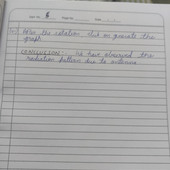 Expt. No. 8 Page No. Date
Now the rotation click on generate the
graph.
CONCLUSION: We have observed the
radiation pattern due to antenna